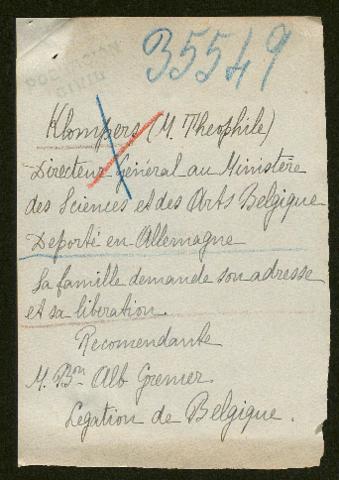 35549
Klompers (M. Theophile)
Directeur Général au Ministère
des Sciences et des Arts Belgique
Deporté en Allemagne
Sa famille demande son adresse
et sa liberation.
Recomendante
M. Bon Alb Grenier.
Legation de Belgique.